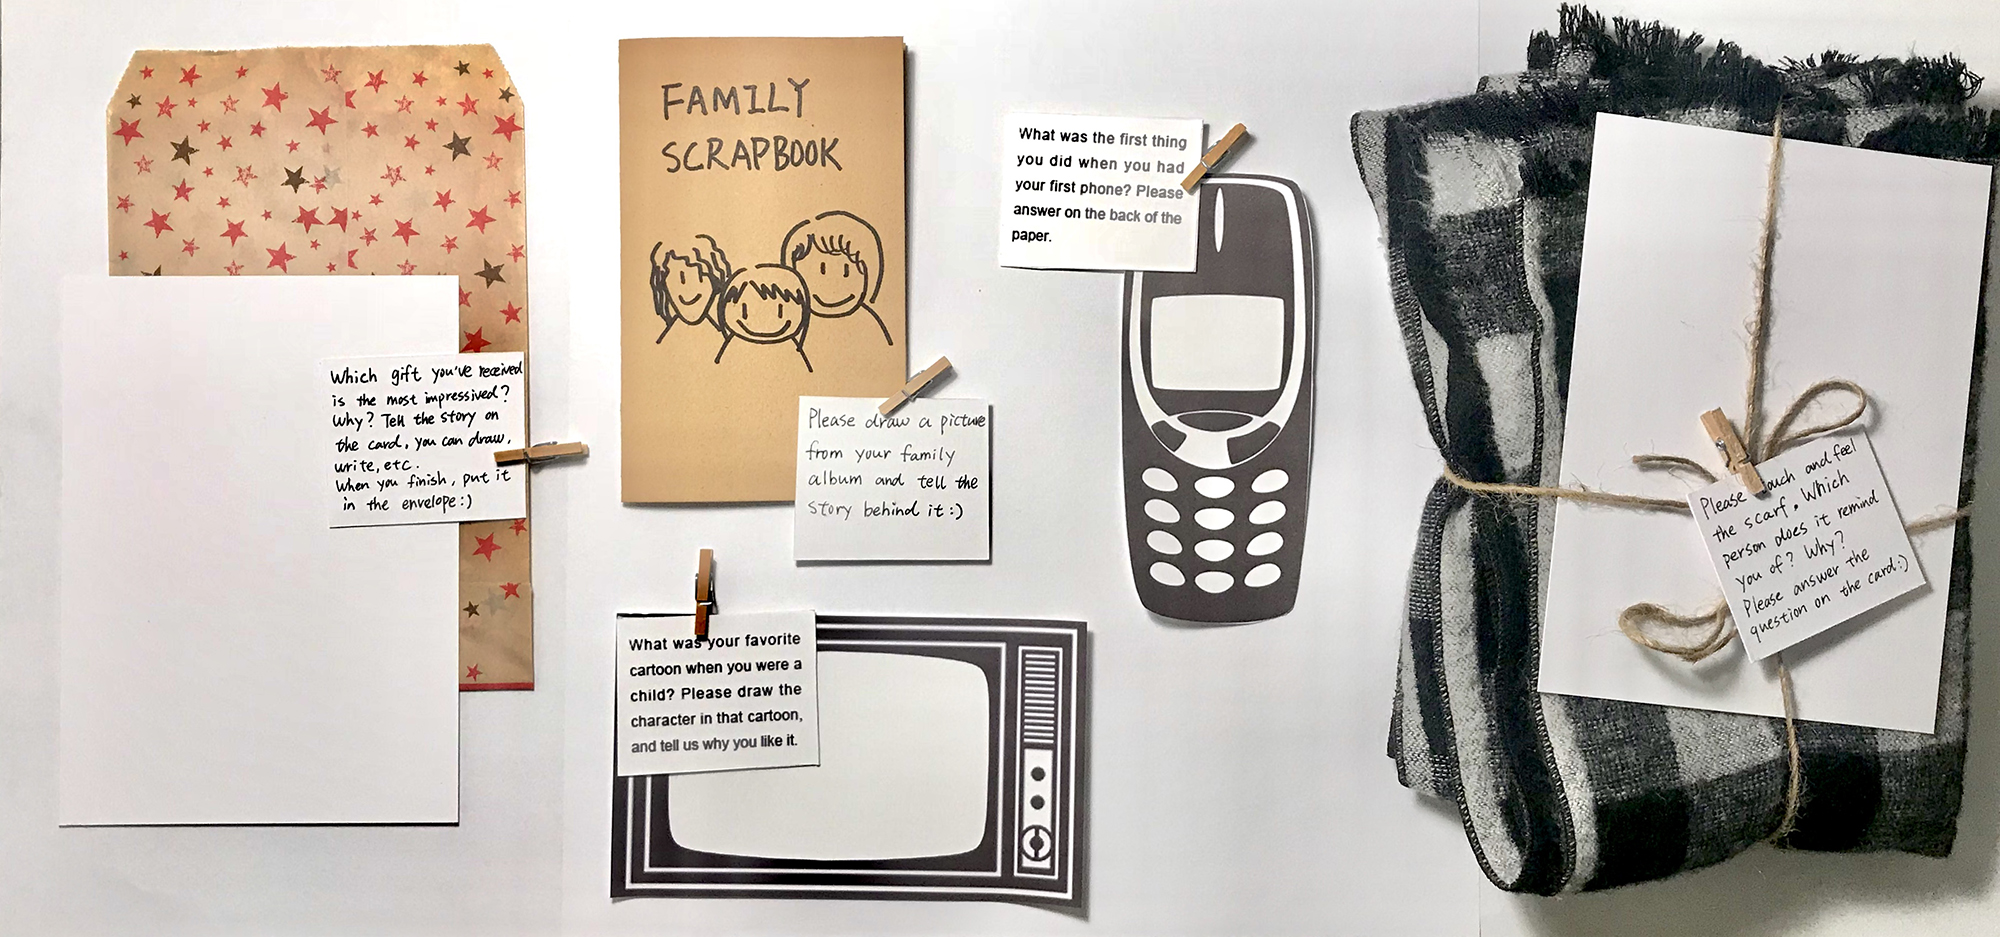 Which gift you've received
is the most impressived?
Why? Tell the story on
the card, you can draw,
write, etc.
When you finish, put it
in the envelope:)
FAMILY
SCRAPBOOK
Please draw a picture
from your family
album and tell the
story behind it:)
What was your favorite
cartoon when you were a
child? Please draw the
character in that cartoon,
and tell us why you like it.
What was the first thing
you did when you had
your first phone? Please
answer on the back of the
paper.
Please touch and feel
the scarf. Which
person does it remind
you of? Why?
Please answer the
question on the card:)